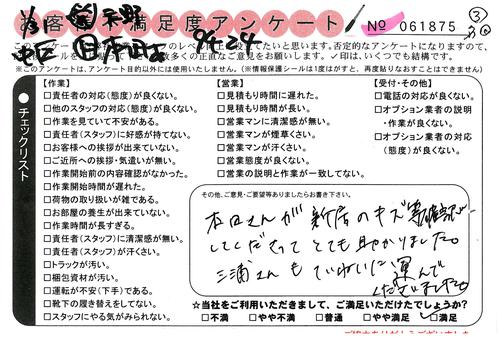 お客様不満足度アンケート
No 061875
③
このアンケートは
否定的なアンケートになりますので、
正直なご意見をお願いします。✓印は、いくつでも結構です。
※このアンケートは、アンケート目的以外には使用いたしません。(※情報保護シールは1度はがすと、再度貼りなおすことはできません)
チェックリスト
【作業】
□責任者の対応(態度)が良くない。
□他のスタッフの対応(態度)が良くない。
□作業を見ていて不安がある。
□責任者(スタッフ)に好感が持てない。
□お客様への挨拶が出来ていない。
□ご近所への挨拶・気遣いが無い。
□作業開始前の内容確認がなかった。
□作業開始時間が遅れた。
□荷物の取り扱いが雑である。
□お部屋の養生が出来ていない。
□作業時間が長すぎる。
□責任者(スタッフ)に清潔感が無い。
□責任者(スタッフ)が汗くさい。
□トラックが汚い。
□梱包資材が汚い。
□運転が不安(下手)である。
□靴下の履き替えをしてない。
□スタッフにやる気がみられない。
【営業】
□見積もり時間に遅れた。
□見積もり時間が長い。
□営業マンに清潔感が無い。
□営業マンが煙草くさい。
□営業マンが汗くさい。
□営業態度が良くない。
□営業の説明と作業が一致してない。
【受付・その他】
□電話の対応が良くない。
□オプション業者の説明
・作業が良くない。
□オプション業者の対応
(態度)が良くない。
その他、ご意見・ご要望等ありましたらお書き下さい。
本田さんが新居のキズ等確認
してくださってとても助かりました。
三浦さんもていねいに運んで
くださいました
☆当社をご利用いただきまして、ご満足いただけたでしょうか?
□不満 □やや不満 □普通 □やや満足 □満足
ご協力ありがとうございました